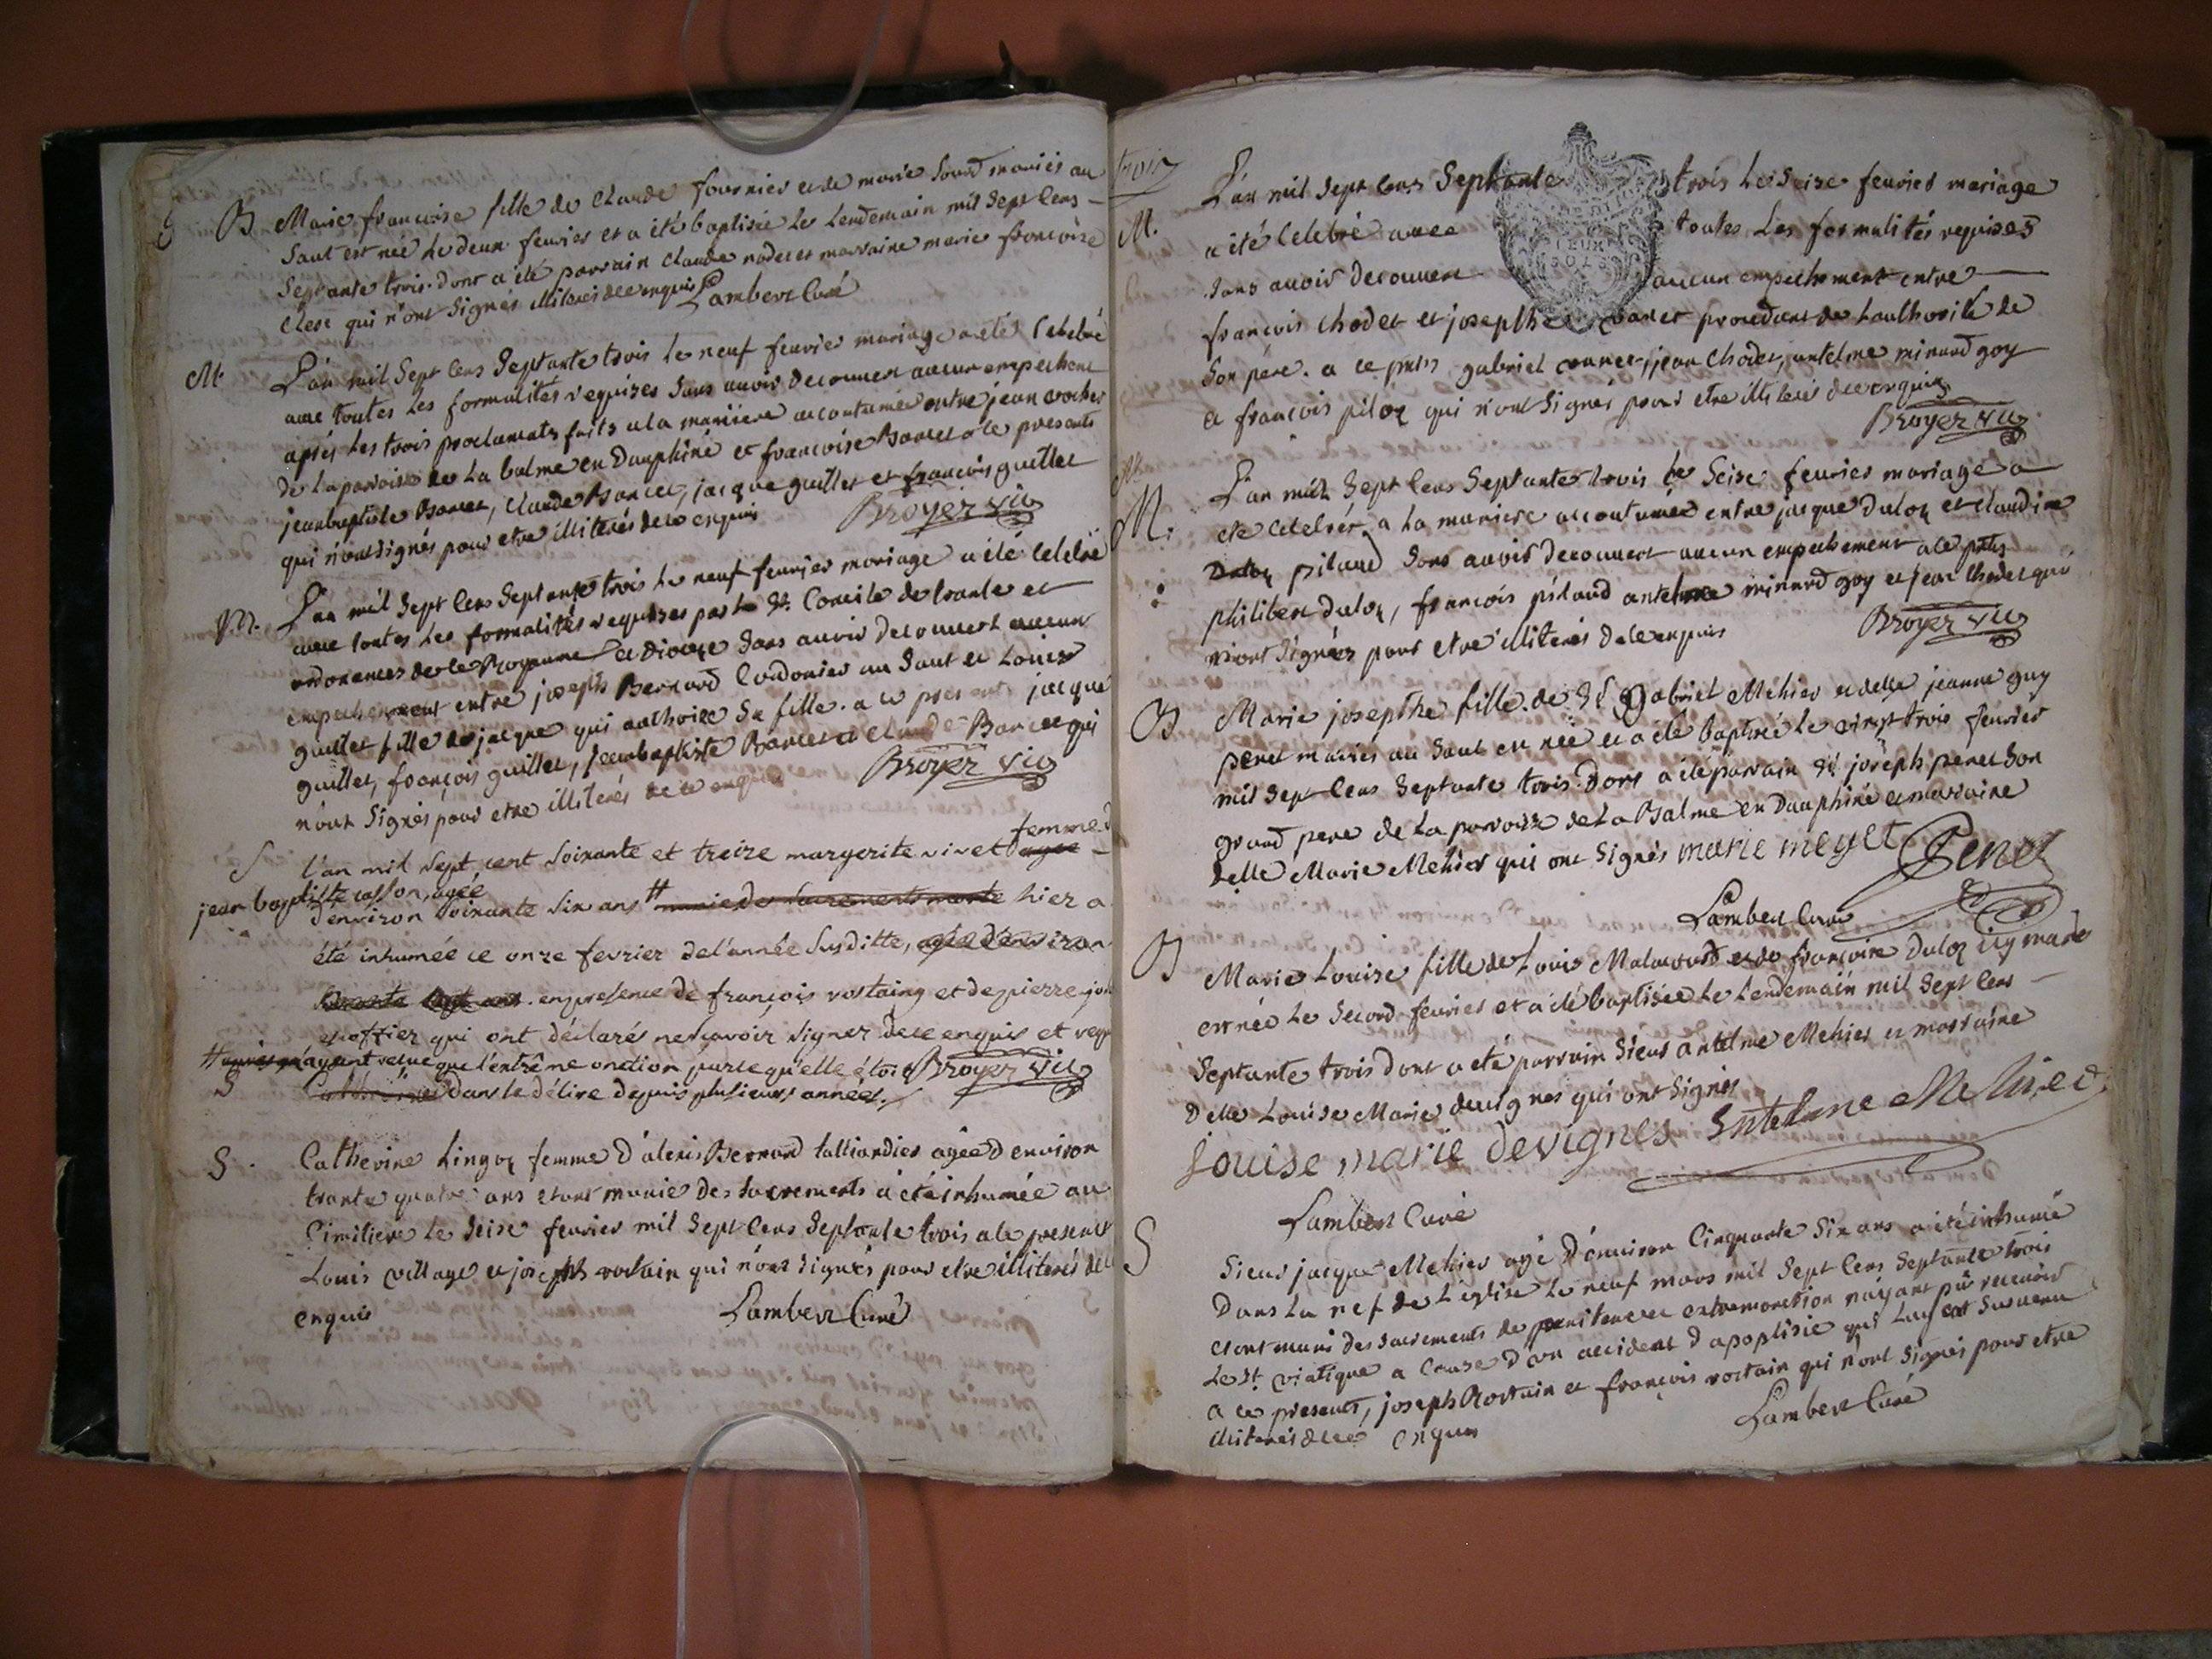 B Marie francoise fille de Claude fournier et de marie Sourd mariés au
Saut est née Le deux feuries et a été baptisée Le Lendemain mil Sept Cens
Septante trois. dont a été parrain Claude nodet et marraine marie francoise
qui n'ont Signés illiterés de ce enquis Lambert Curé
M. L'an mil Sept Cens Septante trois Le neuf feurier mariage a été Celebré
avec toutes Les formalités requises Sans avoir decouvert aucun empechent
aprés Les trois proclamats faits a la maniere accoutumée entre jean crochet
de La paroisse de La balme en Dauphiné et francoise Barcet a ce presents
jeanbaptiste Barcet, Claude Barcet, jacque guillet et francois guillet
qui n'ont Signés pour etre illiterés de ce enquis Broyer vic
M. L'an mil Sept Cens Septante trois Le neuf feurier mariage a été Celebré
avec toutes Les formalités requises par Le St. Concile de trante et
ordonances de ce Royaume et Dioceze Sans avoir decouvert aucun
empechement entre joseph Bernard Cordonier au Saut et Louise
guillet fille de jacque qui authorise Sa fille. a ce presents jacque
guillet, françois guillet, jeanbaptiste Barcet et Claude Barcet qui
n'ont Signés pour etre illiterés de ce enquis Broyer vic
femme d
S l'an mil Sept cent Soixante et treize margerite vivet agée
jean baptiste casson, agée
d'environ Soixante Six ans # munie des Sacrements morte hier a
été inhumée ce onze fevrier de l'année Susditte, agée d'environ
Soixante Sept ans. en presence de françois rostaing et de pierre
qui ont déclarés ne scavoir Signer de ce enquis et
# aprés n'ayant recue que l'extrême onction parce qu'elle étoit Broyer Vic
S Catherine dans le délire depuis plusieurs années.
S. Catherine Lingoz femme d'alexis Bernard talliandier agée d'environ
trante quatre ans etant munie des Sacrements a été inhumée au
Cimitiere Le Seise feurier mil Sept Cens Septante trois a ce presents
Louis village et joseph rostain qui n'ont Signés pour etre illiterés de ce
enquis Lambert Curé
trois
L'an mil Sept Cens Septante trois Le Seise feurier mariage
M. a été Celebré avec toutes Les formalités requises
Sans avoir decouvert aucun empechement entre
françois Chodet et josepthe procedant de Lauthorité de
Son pére. a ce pnts gabriel jean Chodet, antelme minard goy
et francois piloz qui n'ont Signés pour etre illiterés de ce enquis
Broyer vic
M. L'an mil Sept Cens Septante trois Le Seise feurier mariage a
eté Celebré a La maniere accoutumée entre jacque Duloz et Claudine
Duloz pilaud Sans avoir decouvert aucun empechement a ce pnts
philibert Duloz, françois pilaud antelme minard goy et jean Chodet qui
n'ont Signés pour etre illiterés de ce enquis Broyer vic
B Marie josepthe fille de Sr gabriel Mehier et delle jeanne guy
penet mariés au Saut est née et a été baptisé Le vingt trois feurier
mil Sept Cens Septante trois. Dont a été parrain Sr joseph penet Son
grand pere de La paroisse de La Balme en Dauphiné et marraine
delle Marie Mehier qui ont Signés marie meyet Penet
Lambert Curé
B Marie Louise fille de Louis Malaurd et de françoise Duloz icy mariés
est née Le Second feurier et a été baptisée Le Lendemain mil Sept Cens
Septante trois dont a eté parrain Sieur antelme Mehier et marraine
Delle Louise Marie devignes qui ont Signés
Louise marie devignes Entelme Mehier
Lambert Curé
S Sieur jacque Mehier agé D'environ Cinquante Six ans a été inhumé
Dans La nef de L'église Le neuf mars mil Sept Cens Septante trois
etant muni des Sacrements de penitence et extremonction n'ayant pû recevoir
Le St. viatique a Cause d'un accident d'apoplisie qui Luy est Survenu
a ce presents, joseph Rostain et françois rostain qui n'ont Signés pour etre
illiterés de ce enquis Lambert Curé